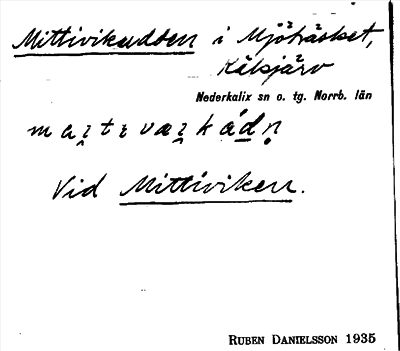 Mittivikudden i Mjöträsket,
Kälsjärv
Nederkalix sn o. tg. Norrb. län
Vid Mittiviken.
RUBEN DANIELSSON 1935